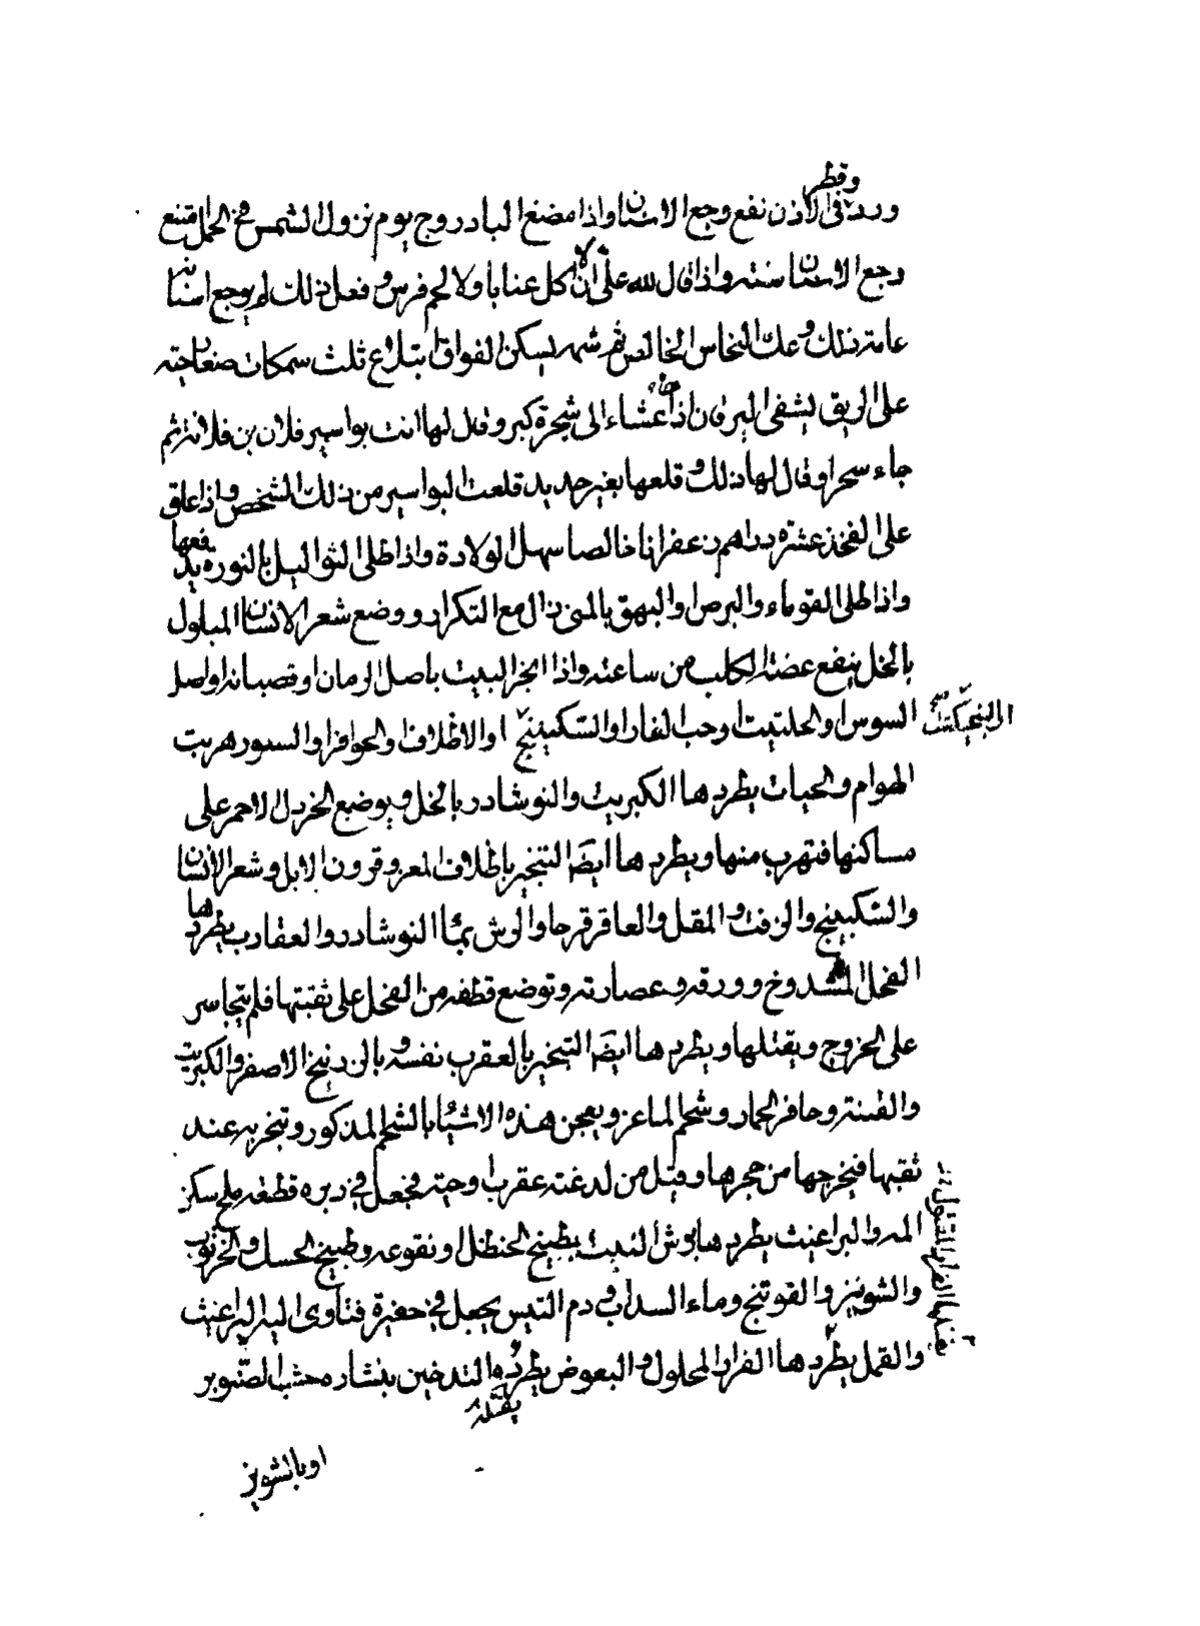 ورده وقطر في الاذن نفع وجع الاسنان واذا مضغ البادروج يوم نزول الشمس في الحمل منع
وجع الاسنان سنته واذا قال لله علي ان لا اكل عنابا ولا لحم فرس وفعل ذلك لم يوجع اسنانه
عامة ذلك وعلك النحاس الخالص ثم شمه يسكن الفواق ابتلاع ثلث سمكات صغار حية
على الريق يشفي اليرقان اذا جاء عشاء الى شجرة كبر وقال لها انت بواسير فلان بن فلانة ثم
جاء سحرا وقال لها ذلك وقلعها بغير حديد قلعت البواسير من ذلك الشخص واذا علق
على الفخذ عشرة دراهم زعفرانا خالصا سهل الولادة واذا طلى الثواليل بالنورة يدفعها
واذا طلى القوباء والبرص والبهق بالمنى زال مع التكرار ووضع شعر الانسان المبلول
بالخل ينفع عضة الكلب من ساعته واذا ابخر البيت باصل الرمان او قضبانه او اصل
السوس او الحلتيت او حب الغار او السكبينج او الاظلاف والحوافر او السمور هربت
الهوام والحيات يطردها الكبريت والنوشادر بالخل ويوضع الخردل الاحمر على
مساكنها فتهرب منها ويطردها ايضا التبخير باظلاف المعز وقرون الابل وشعر الانسان
والسكبينج والزفت والمقل والعاقرقرحا والرش بماء النوشادر والعقارب يطردها
الفجل المشدوخ وورقه وعصارته وتوضع قطفه من الفجل على ثقبتها فلم يتجاسر
على الخروج ويقتلها ويطردها ايضا التبخير بالعقرب نفسه وبالزرنيخ الاصفر والكبريت
والقنة وحافر الحمار وشحم الماعز ويعجن هذه الاشياء بالشحم المذكور وتبخر به عند
ثقبها فيخرجها من حجرها وقيل من لدغته عقرب او حية فجعل في دبره قطعه ملح سكن
المه والبراغيث يطردها برش البيت بطبيخ الحنظل او نقوعه وطبيخ الحسك والخرنوب
والشونيز والفوتنج وماء السداب ودم التيس يجعل في حفيرة فتاوى اليه البراغيث
والقمل يطردها الفرار المحلول والبعوض يطرده التدخين بنشاره خشب الصنوبر
يقتله
او بالشونيز